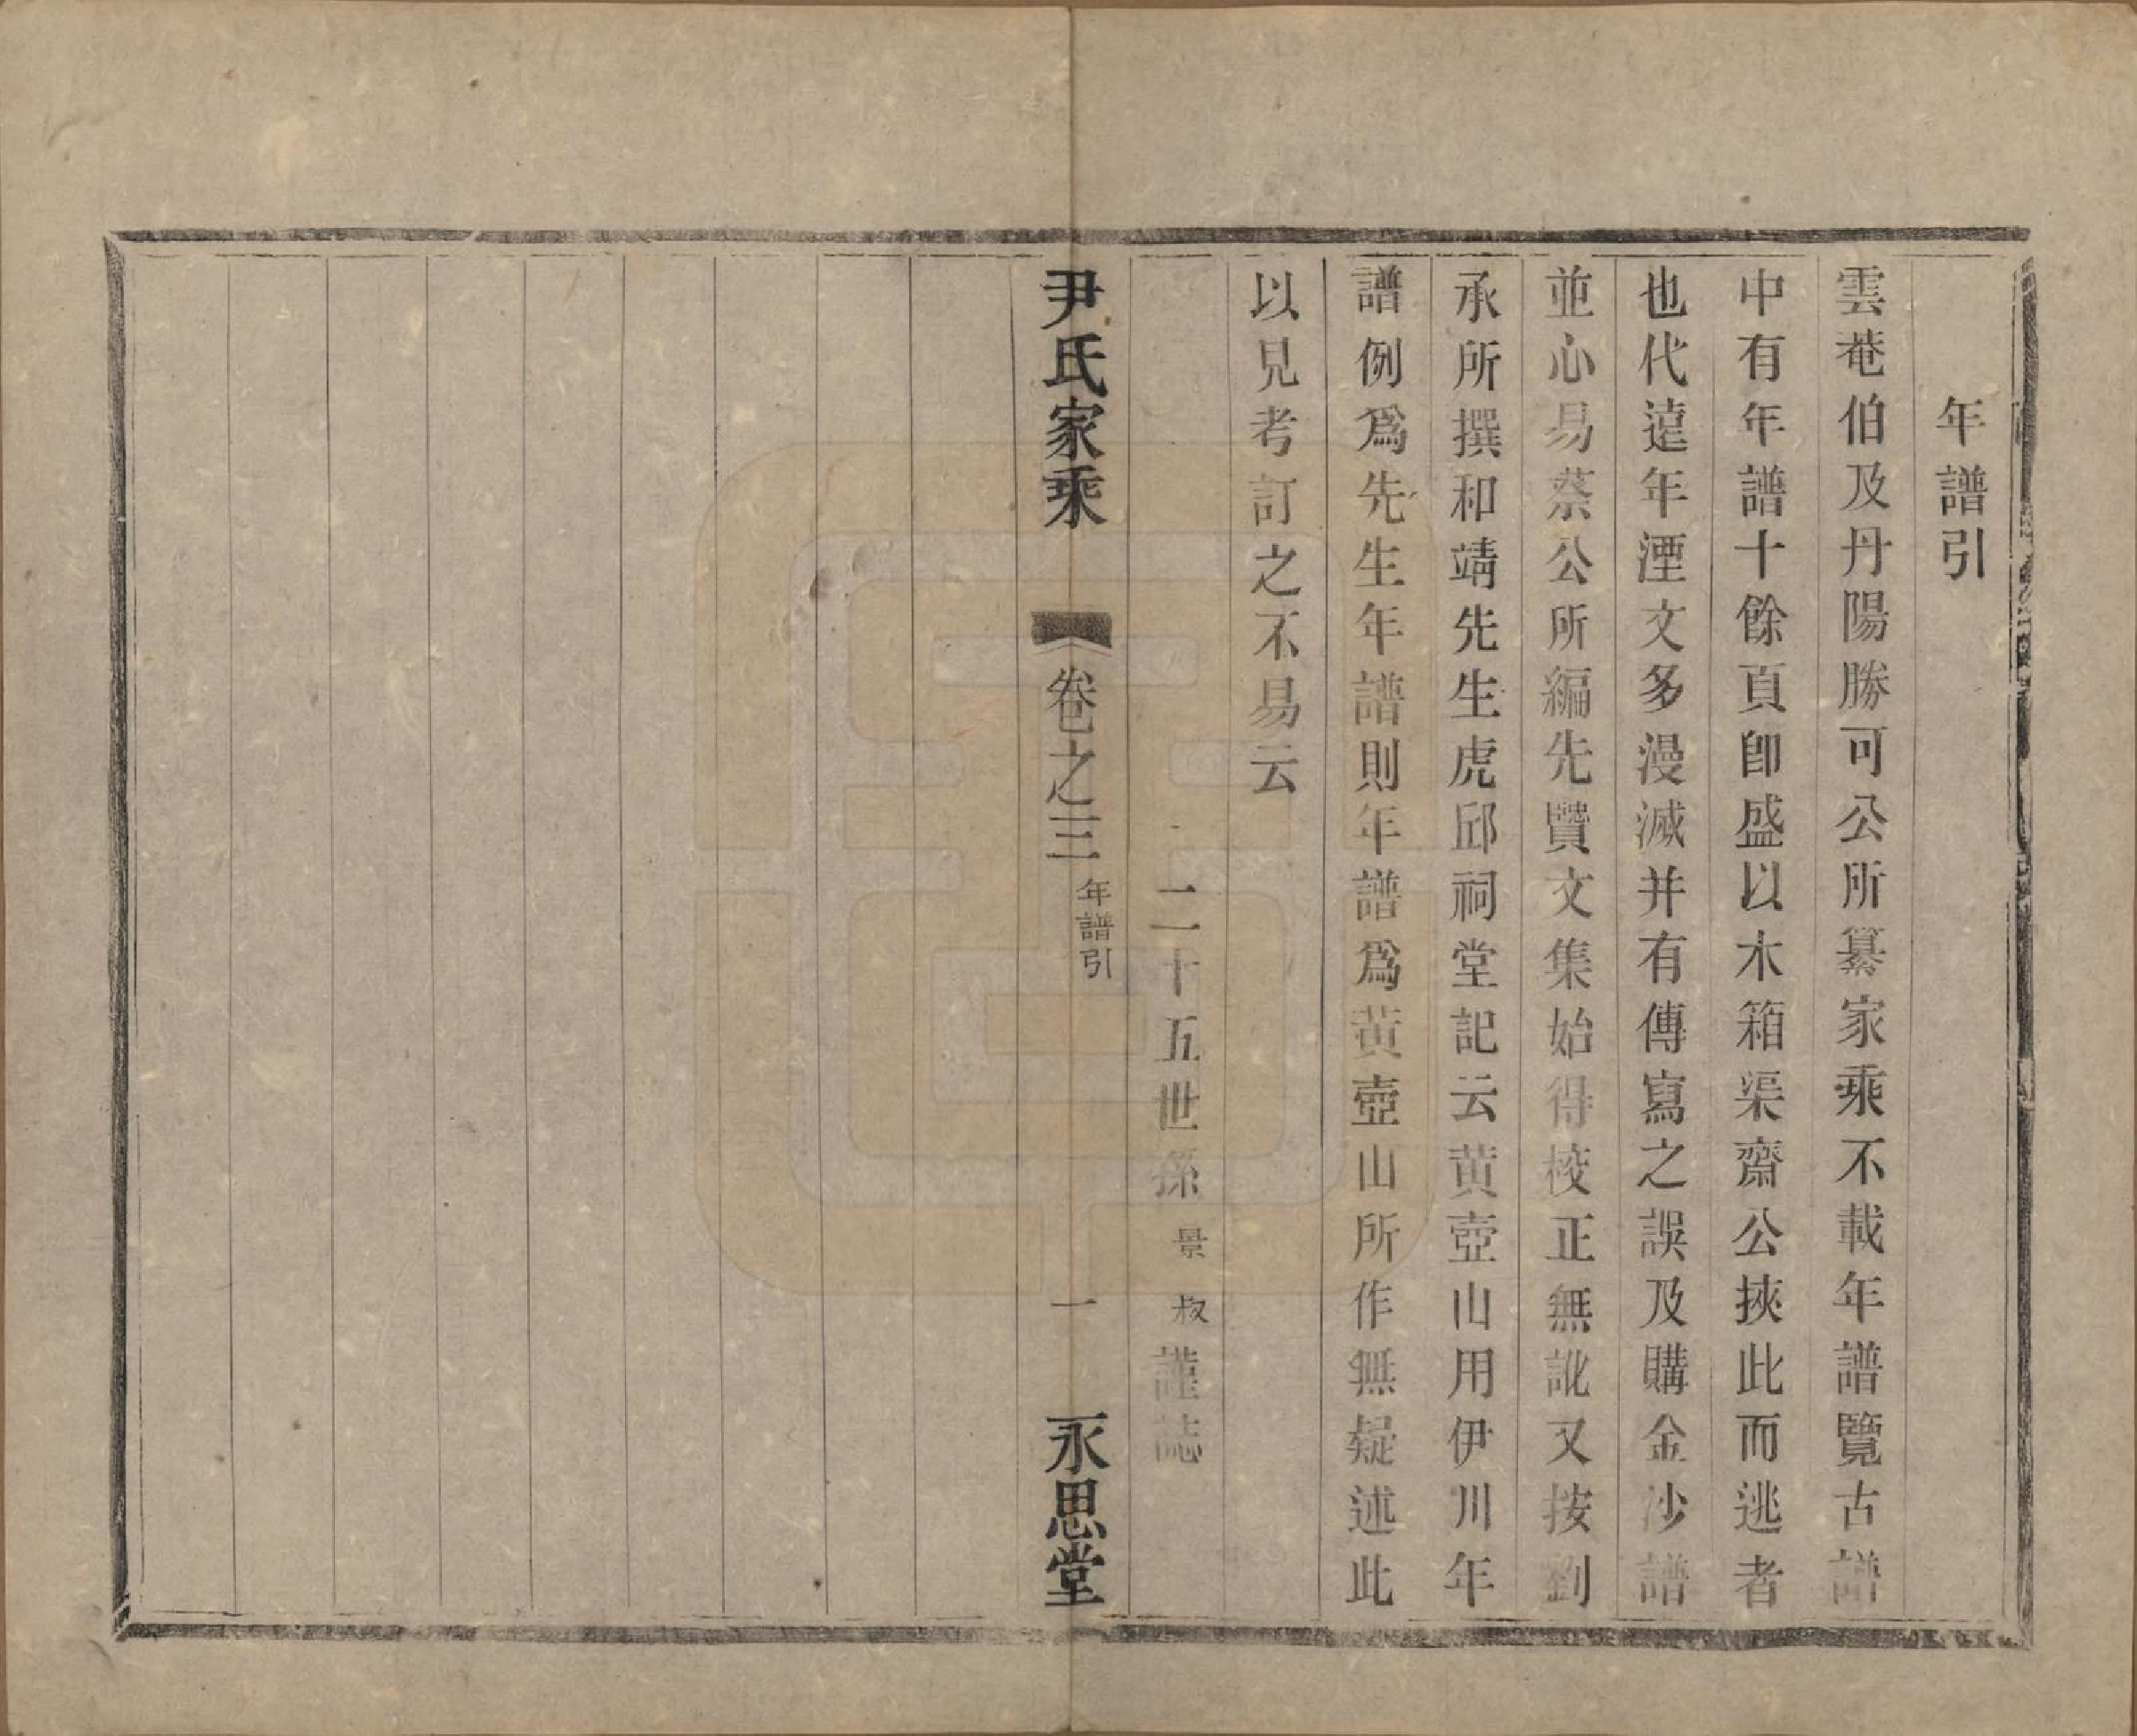 年譜引
雲菴伯及丹陽勝可公所纂家乘不載年譜覽古譜
中有年譜十餘頁卽盛以木箱渠齋公挾此而逃者
也代遠年湮文多漫滅并有傳寫之誤及購金沙譜
並心易蔡公所編先賢文集始得校正無訛又按劉
承所撰和靖先生虎邱祠堂記云黃壺山用伊川年
譜例爲先生年譜則年譜爲黃壺山所作無疑述此
以見考訂之不易云
二十五世孫景叔謹誌
尹氏家乘 卷之三 年譜引 一 永思堂